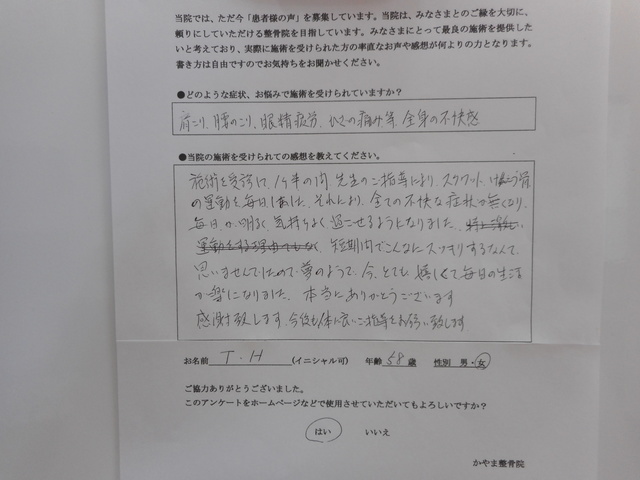 当院では、ただ今「患者様の声」を募集しています。当院は、みなさまとのご縁を大切に、
頼りにしていただける整骨院を目指しています。みなさまにとって最良の施術を提供した
いと考えており、実際に施術を受けられた方の率直なお声や感想が何よりの力となります。
書き方は自由ですのでお気持ちをお聞かせください。
●どのような症状、お悩みで施術を受けられていますか?
肩こり、腰のこり、眼精疲労、ひざの痛み等、全身の不快感
●当院の施術を受けられての感想を教えてください。
施術を受け、1ヶ半の間、先生のご指導により、スクワット、けんこう骨
の運動を毎日しました。それにより、全ての不快な症状が無くなり、
毎日が明るく気持ちよく過ごせるようになりました。特に激しい
運動をする理由でもなく、短期間でこんなにスッキリするなんて、
思いませんでしたので、夢のようで、今、とても嬉しくて毎日の生活
が楽になりました。本当にありがとうございます
感謝致します。今後も体に良いご指導をお願い致します
お名前 T.H (イニシャル可) 年齢 58 歳 性別 男・女
ご協力ありがとうございました。
このアンケートをホームページなどで使用させていただいてもよろしいですか?
はい いいえ
かやま整骨院